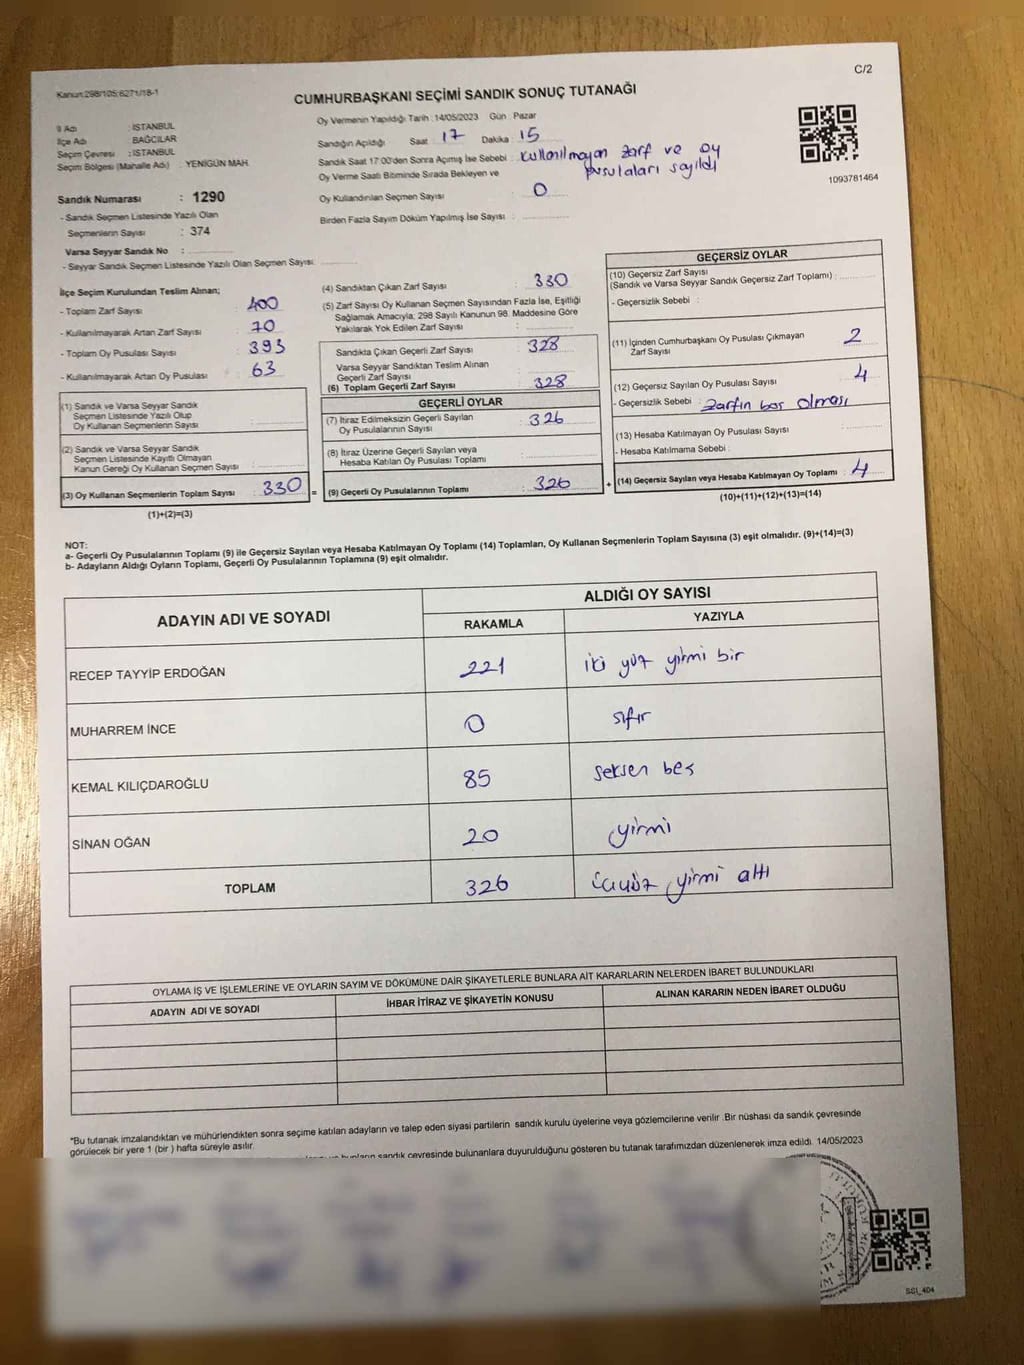 C/2
Kanun:298/105;6271/18-1
CUMHURBAŞKANI SEÇİMİ SANDIK SONUÇ TUTANAĞI
İl Adı : İSTANBUL
İlçe Adı : BAĞCILAR
Seçim Çevresi : İSTANBUL
Seçim Bölgesi (Mahalle Adı) : YENİGÜN MAH.
Oy Vermenin Yapıldığı Tarih : 14/05/2023 Gün : Pazar
Sandığın Açıldığı Saat : 17 Dakika : 15
Sandık Saat 17:00'den Sonra Açılmış İse Sebebi : Kullanılmayan zarf ve oy pusulaları sayıldı
Oy Verme Saati Bitiminde Sırada Bekleyen ve
Oy Kullandırılan Seçmen Sayısı : 0
Birden Fazla Sayım Döküm Yapılmış İse Sayısı :
1093781464
Sandık Numarası : 1290
- Sandık Seçmen Listesinde Yazılı Olan
Seçmenlerin Sayısı : 374
Varsa Seyyar Sandık No :
- Seyyar Sandık Seçmen Listesinde Yazılı Olan Seçmen Sayısı:
İlçe Seçim Kurulundan Teslim Alınan;
- Toplam Zarf Sayısı : 400
- Kullanılmayarak Artan Zarf Sayısı : 70
- Toplam Oy Pusulası Sayısı : 393
- Kullanılmayarak Artan Oy Pusulası : 63
(1) Sandık ve Varsa Seyyar Sandık
Seçmen Listesinde Yazılı Olup
Oy Kullanan Seçmenlerin Sayısı :
(2) Sandık ve Varsa Seyyar Sandık
Seçmen Listesinde Kayıtlı Olmayan
Kanun Gereği Oy Kullanan Seçmen Sayısı :
(3) Oy Kullanan Seçmenlerin Toplam Sayısı : 330 =
(1)+(2)=(3)
(4) Sandıktan Çıkan Zarf Sayısı : 330
(5) Zarf Sayısı Oy Kullanan Seçmen Sayısından Fazla İse, Eşitliği
Sağlamak Amacıyla; 298 Sayılı Kanunun 98. Maddesine Göre
Yakılarak Yok Edilen Zarf Sayısı :
Sandıkta Çıkan Geçerli Zarf Sayısı : 328
Varsa Seyyar Sandıktan Teslim Alınan
Geçerli Zarf Sayısı :
(6) Toplam Geçerli Zarf Sayısı : 328
GEÇERLİ OYLAR
(7) İtiraz Edilmeksizin Geçerli Sayılan
Oy Pusulalarının Sayısı : 326
(8) İtiraz Üzerine Geçerli Sayılan veya
Hesaba Katılan Oy Pusulası Toplamı :
(9) Geçerli Oy Pusulalarının Toplamı : 326 +
GEÇERSİZ OYLAR
(10) Geçersiz Zarf Sayısı
(Sandık ve Varsa Seyyar Sandık Geçersiz Zarf Toplamı) :
- Geçersizlik Sebebi :
(11) İçinden Cumhurbaşkanı Oy Pusulası Çıkmayan
Zarf Sayısı : 2
(12) Geçersiz Sayılan Oy Pusulası Sayısı : 4
- Geçersizlik Sebebi : Zarfın boş olması
(13) Hesaba Katılmayan Oy Pusulası Sayısı :
- Hesaba Katılmama Sebebi :
(14) Geçersiz Sayılan veya Hesaba Katılmayan Oy Toplamı : 4
(10)+(11)+(12)+(13)=(14)
NOT:
a- Geçerli Oy Pusulalarının Toplamı (9) ile Geçersiz Sayılan veya Hesaba Katılmayan Oy Toplamı (14) Toplamları, Oy Kullanan Seçmenlerin Toplam Sayısına (3) eşit olmalıdır. (9)+(14)=(3)
b- Adayların Aldığı Oyların Toplamı, Geçerli Oy Pusulalarının Toplamına (9) eşit olmalıdır.
ADAYIN ADI VE SOYADI ALDIĞI OY SAYISI
RAKAMLA YAZIYLA
RECEP TAYYİP ERDOĞAN 221 iki yüz yirmi bir
MUHARREM İNCE 0 sıfır
KEMAL KILIÇDAROĞLU 85 seksen beş
SİNAN OĞAN 20 yirmi
TOPLAM 326 üçyüz yirmi altı
OYLAMA İŞ VE İŞLEMLERİNE VE OYLARIN SAYIM VE DÖKÜMÜNE DAİR ŞİKAYETLERLE BUNLARA AİT KARARLARIN NELERDEN İBARET BULUNDUKLARI
ADAYIN ADI VE SOYADI İHBAR İTİRAZ VE ŞİKAYETİN KONUSU ALINAN KARARIN NEDEN İBARET OLDUĞU
*Bu tutanak imzalandıktan ve mühürlendikten sonra seçime katılan adayların ve talep eden siyasi partilerin sandık kurulu üyelerine veya gözlemcilerine verilir .Bir nüshası da sandık çevresinde
görülecek bir yere 1 (bir ) hafta süreyle asılır.
bunların sandık çevresinde bulunanlara duyurulduğunu gösteren bu tutanak tarafımızdan düzenlenerek imza edildi. 14/05/2023
SSI_404